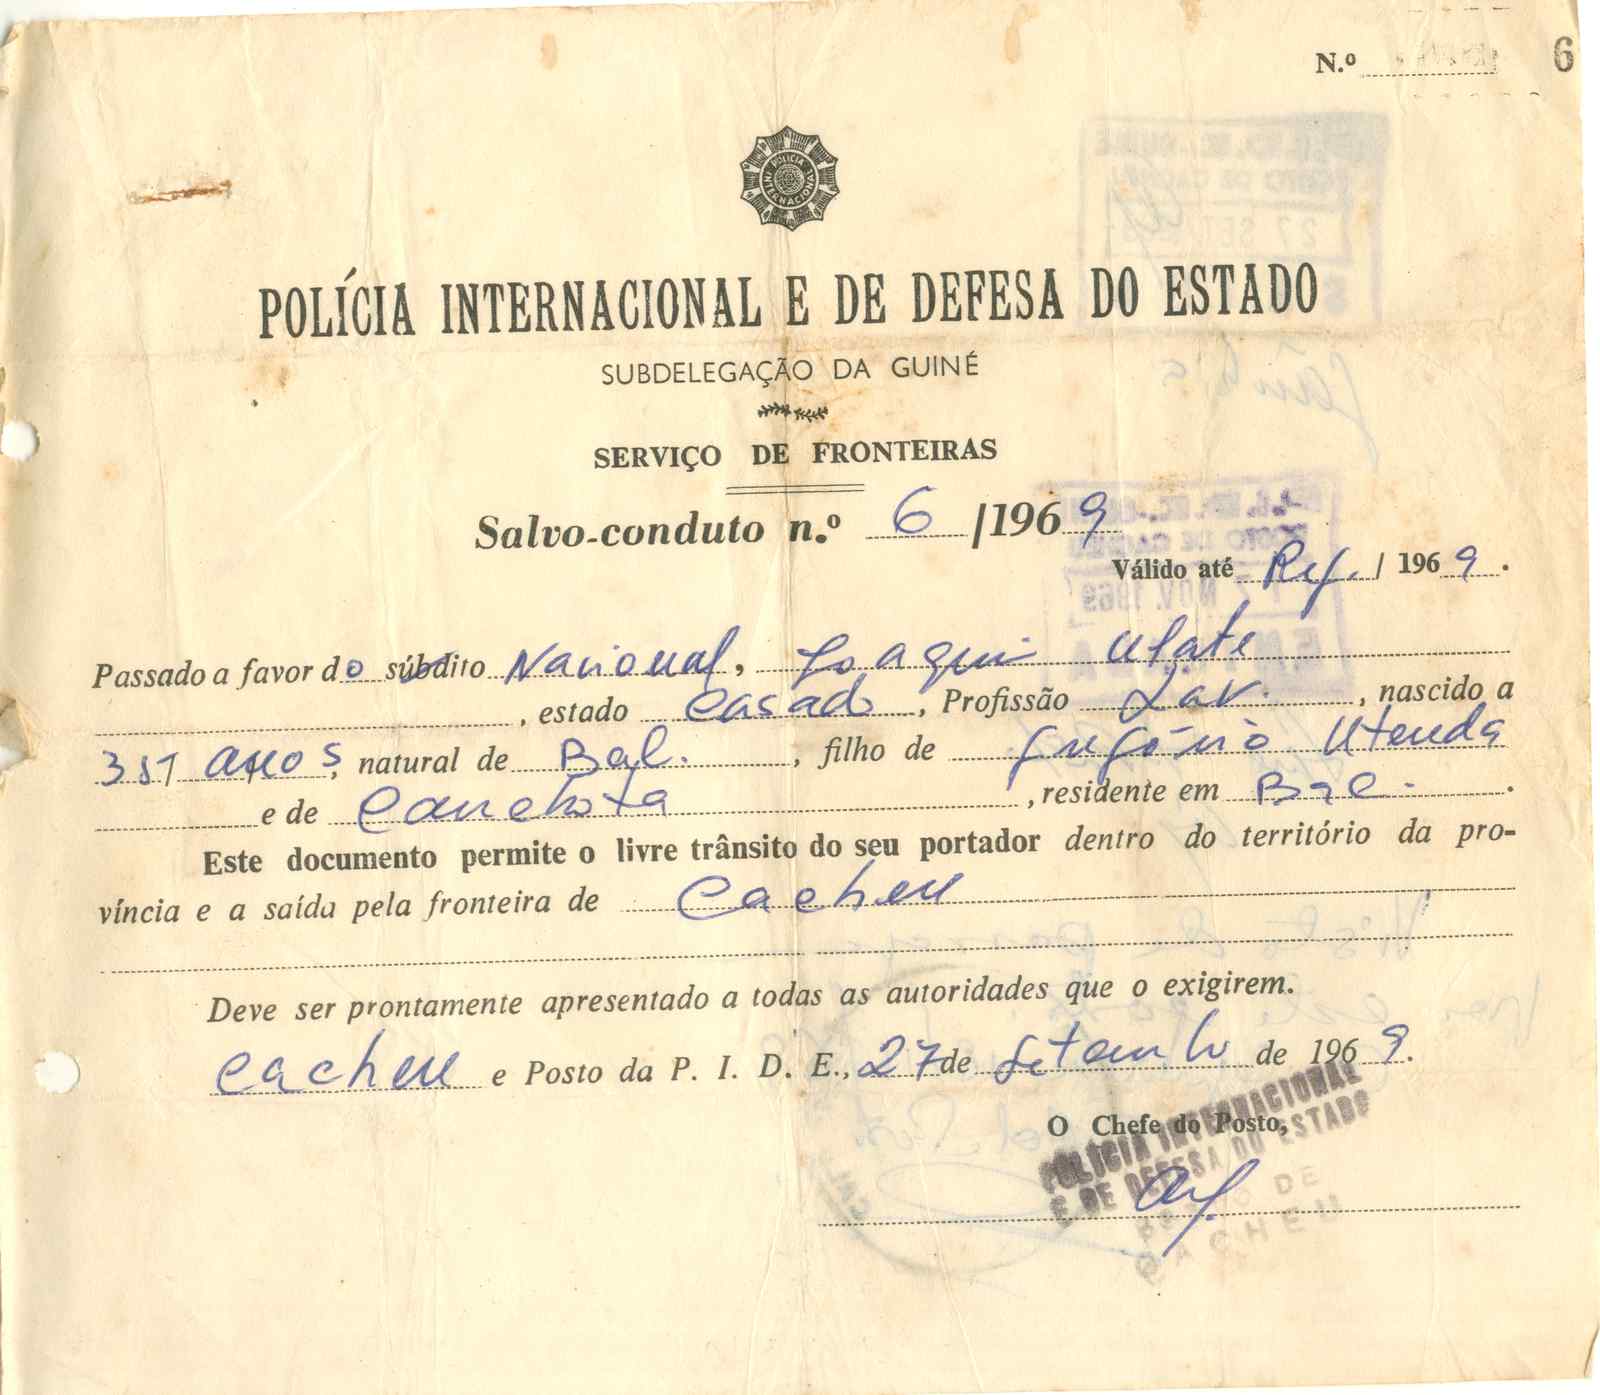 N.º 6
POLÍCIA INTERNACIONAL
POLÍCIA INTERNACIONAL E DE DEFESA DO ESTADO
SUBDELEGAÇÃO DA GUINÉ
SERVIÇO DE FRONTEIRAS
Salvo-conduto n.º 6 /1969
Válido até Reg. / 1969.
Passado a favor do súbdito Nacional, Joaquin
, estado Casado, Profissão Lav., nascido a
anos, natural de Bal., filho de Gregório Utenda
e de, residente em Bal.
Este documento permite o livre trânsito do seu portador dentro do território da pro-
víncia e a saída pela fronteira de Cacheu
Deve ser prontamente apresentado a todas as autoridades que o exigirem.
Cacheu e Posto da P. I. D. E., 27 de Setembro de 1969.
O Chefe do Posto,
POLÍCIA INTERNACIONAL
E DE DEFESA DO ESTADO
POSTO DE
CACHEU